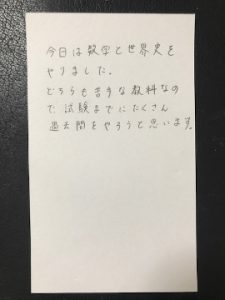 今日は数学と世界史を
やりました。
どちらも苦手な教科なの
で試験までにたくさん
過去問をやろうと思います。